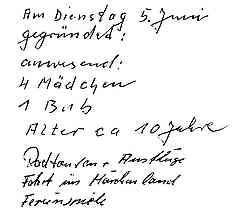 Am Dienstag 5. Juni
gegründet:
anwesend:
4 Mädchen
1 Bub
Alter ca 10 Jahre
Radtouren + Ausflüge
Fahrt ins Märchenland
Ferienspiele